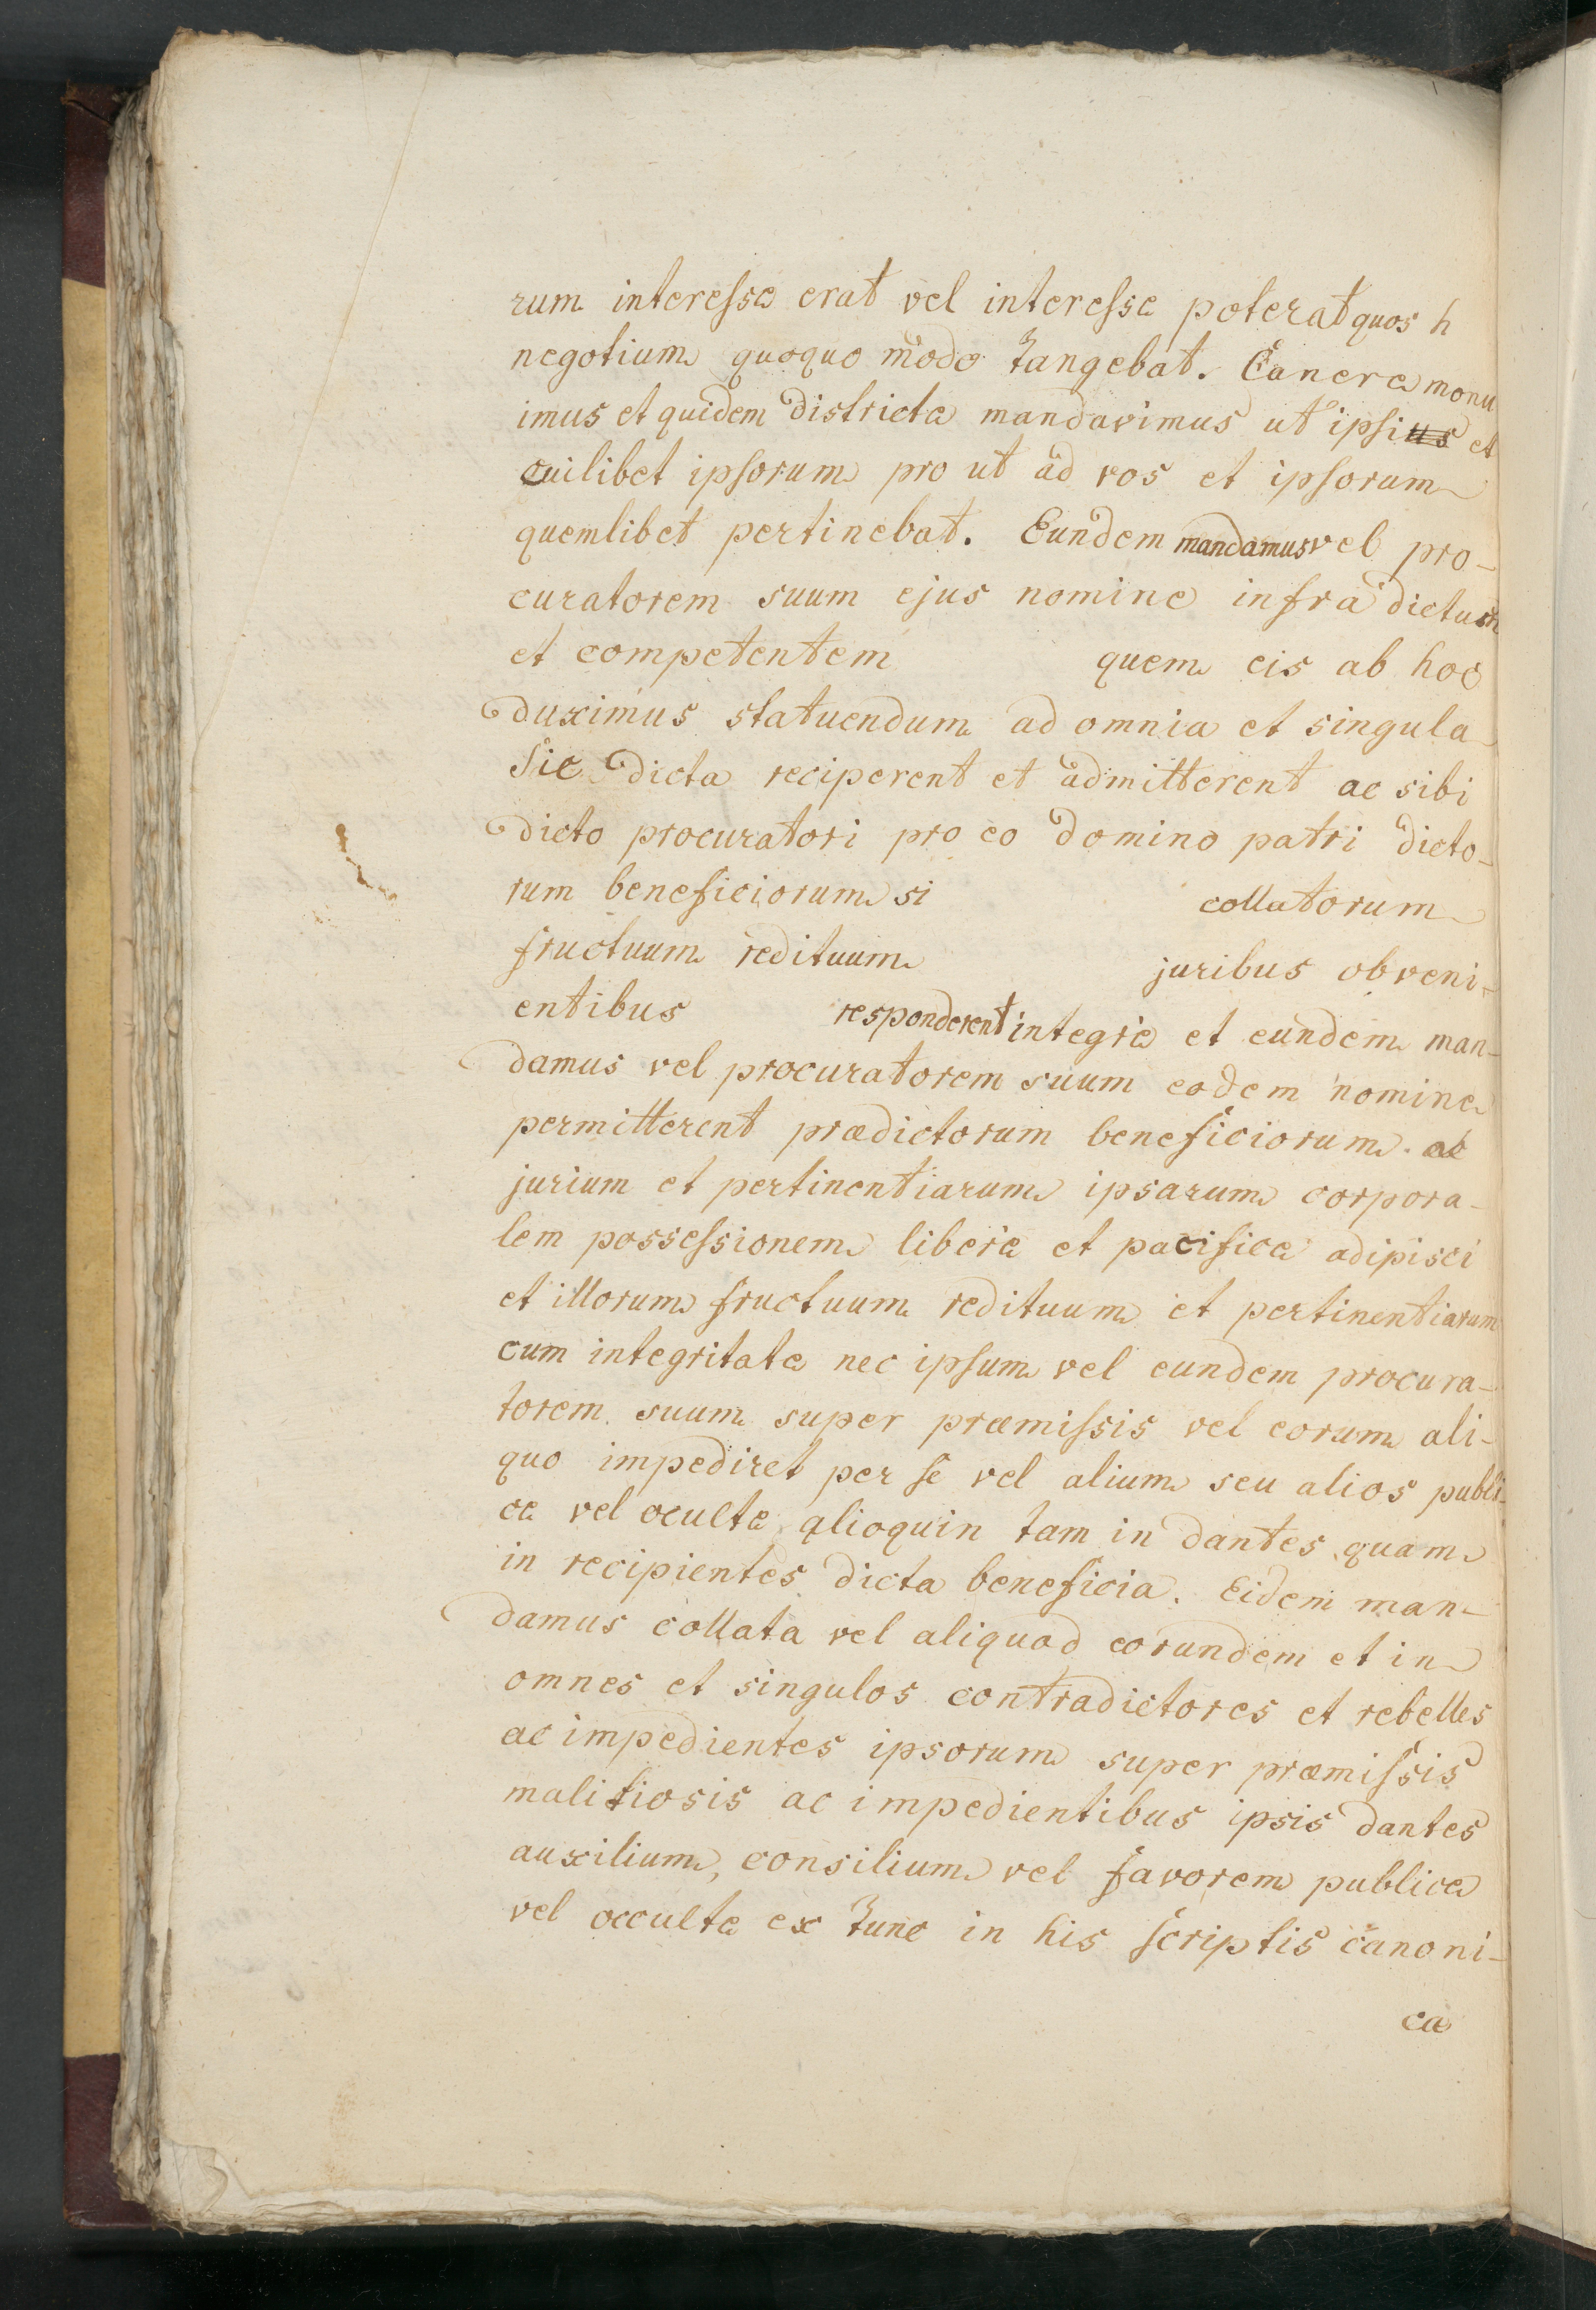 rum interesse erat vel interesse poterat quos h
negotium quoquo modo tangebat. Canere monu
imus et quidem districte mandavimus ut ipsius et
cuilibet ipsorum pro ut ad vos et ipsorum
quemlibet pertinebat. Eundem mandamus vel pro-
curatorem suum ejus nomine infra dictum
et competentem quem eis ab hoc
duximus statuendum ad omnia et singula
sic dicta reciperent et admitterent ac sibi
dicto procuratori pro eo domino patri dicto-
rum beneficiorum si collatorum
fructuum redituum juribus obveni-
entibus responderent integre et eundem man-
damus vel procuratorem suum eodem nomine
permitterent prædictorum beneficiorum. ac
jurium et pertinentiarum ipsarum corpora-
lem possessionem libere et pacifice adipisci
et illorum fructuum redituum et pertinentiarum
cum integritate nec ipsum vel eundem procura-
torem suum super præmissis vel eorum ali-
quo impediret per se vel alium seu alios publi-
ce vel oculte alioquin tam in dantes quam
in recipientes dicta beneficia. Eidem man-
damus collata vel aliquod eorundem et in
omnes et singulos contradictores et rebelles
ac impedientes ipsorum super præmissis
malitiosis ac impedientibus ipsis dantes
auxilium, consilium vel favorem publice
vel occulte ex tunc in his scriptis canoni-
ca